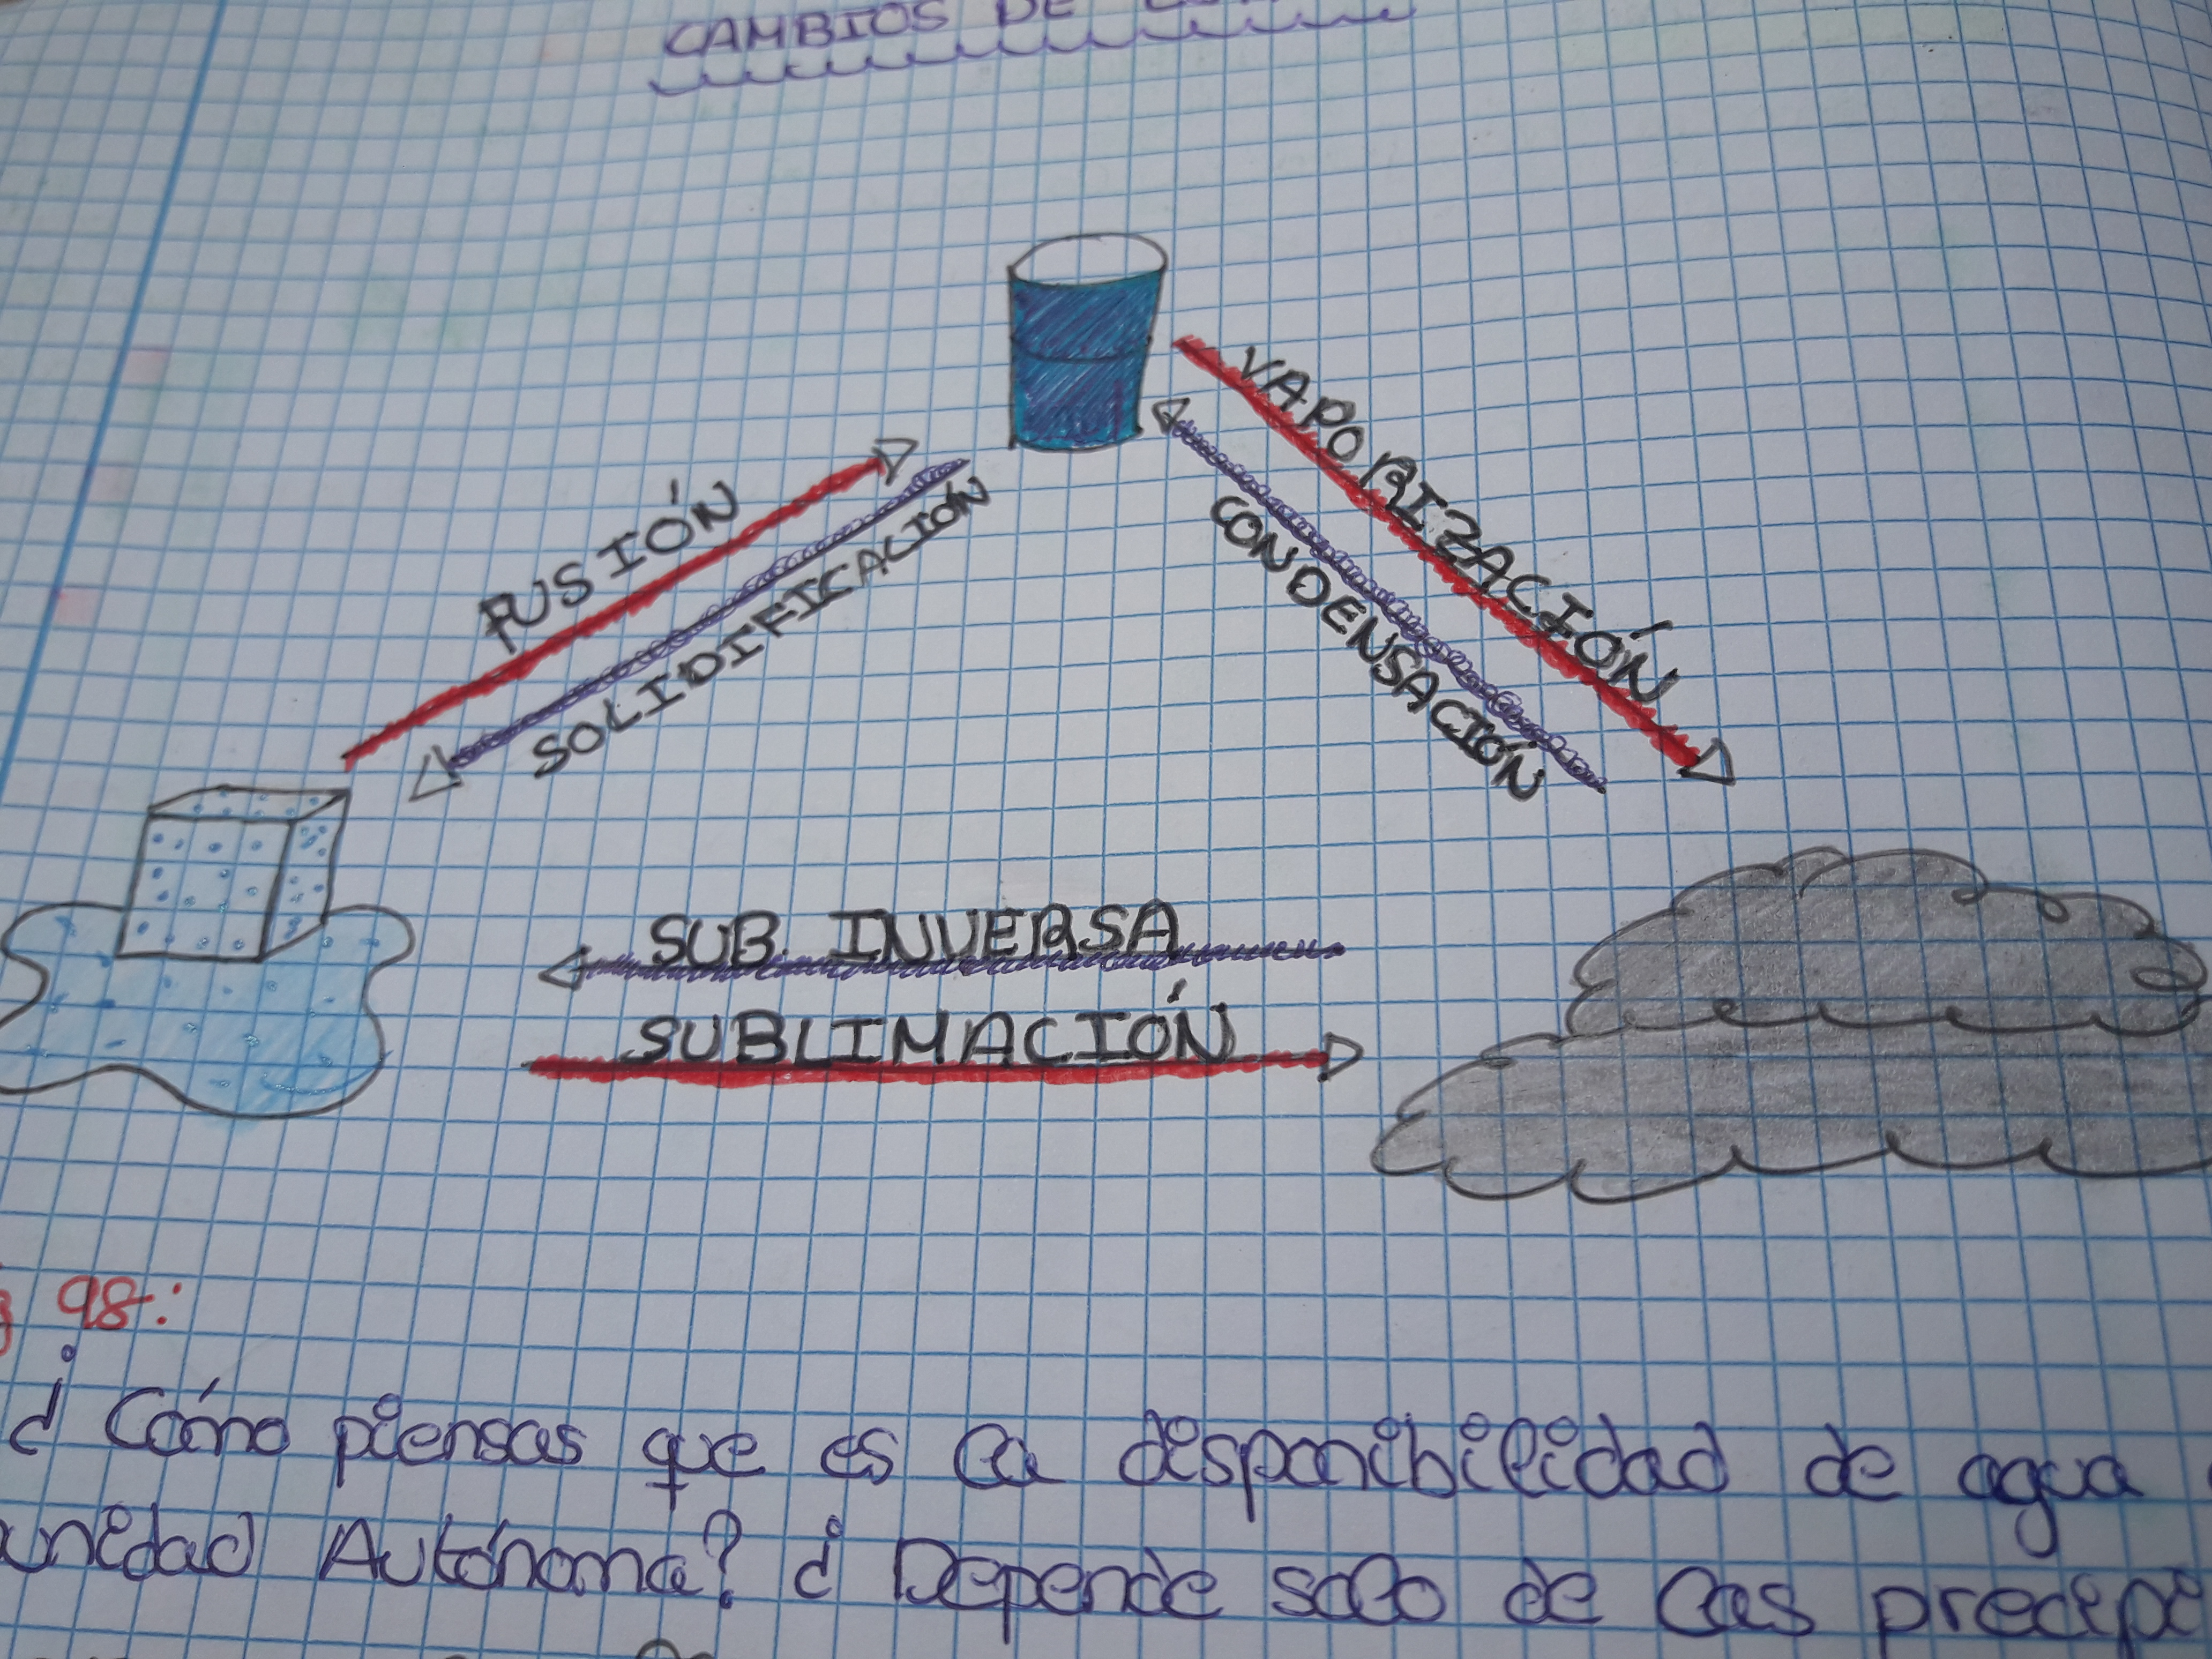 CAMBIOS DE
VAPORIZACIÓN
FUSIÓN
SOLIDIFICACIÓN
CONDENSACIÓN
SUB. INVERSA
SUBLIMACIÓN
98:
¿Cómo piensas que es la disponibilidad de agua
unidad Autónoma? ¿Depende solo de las precipi